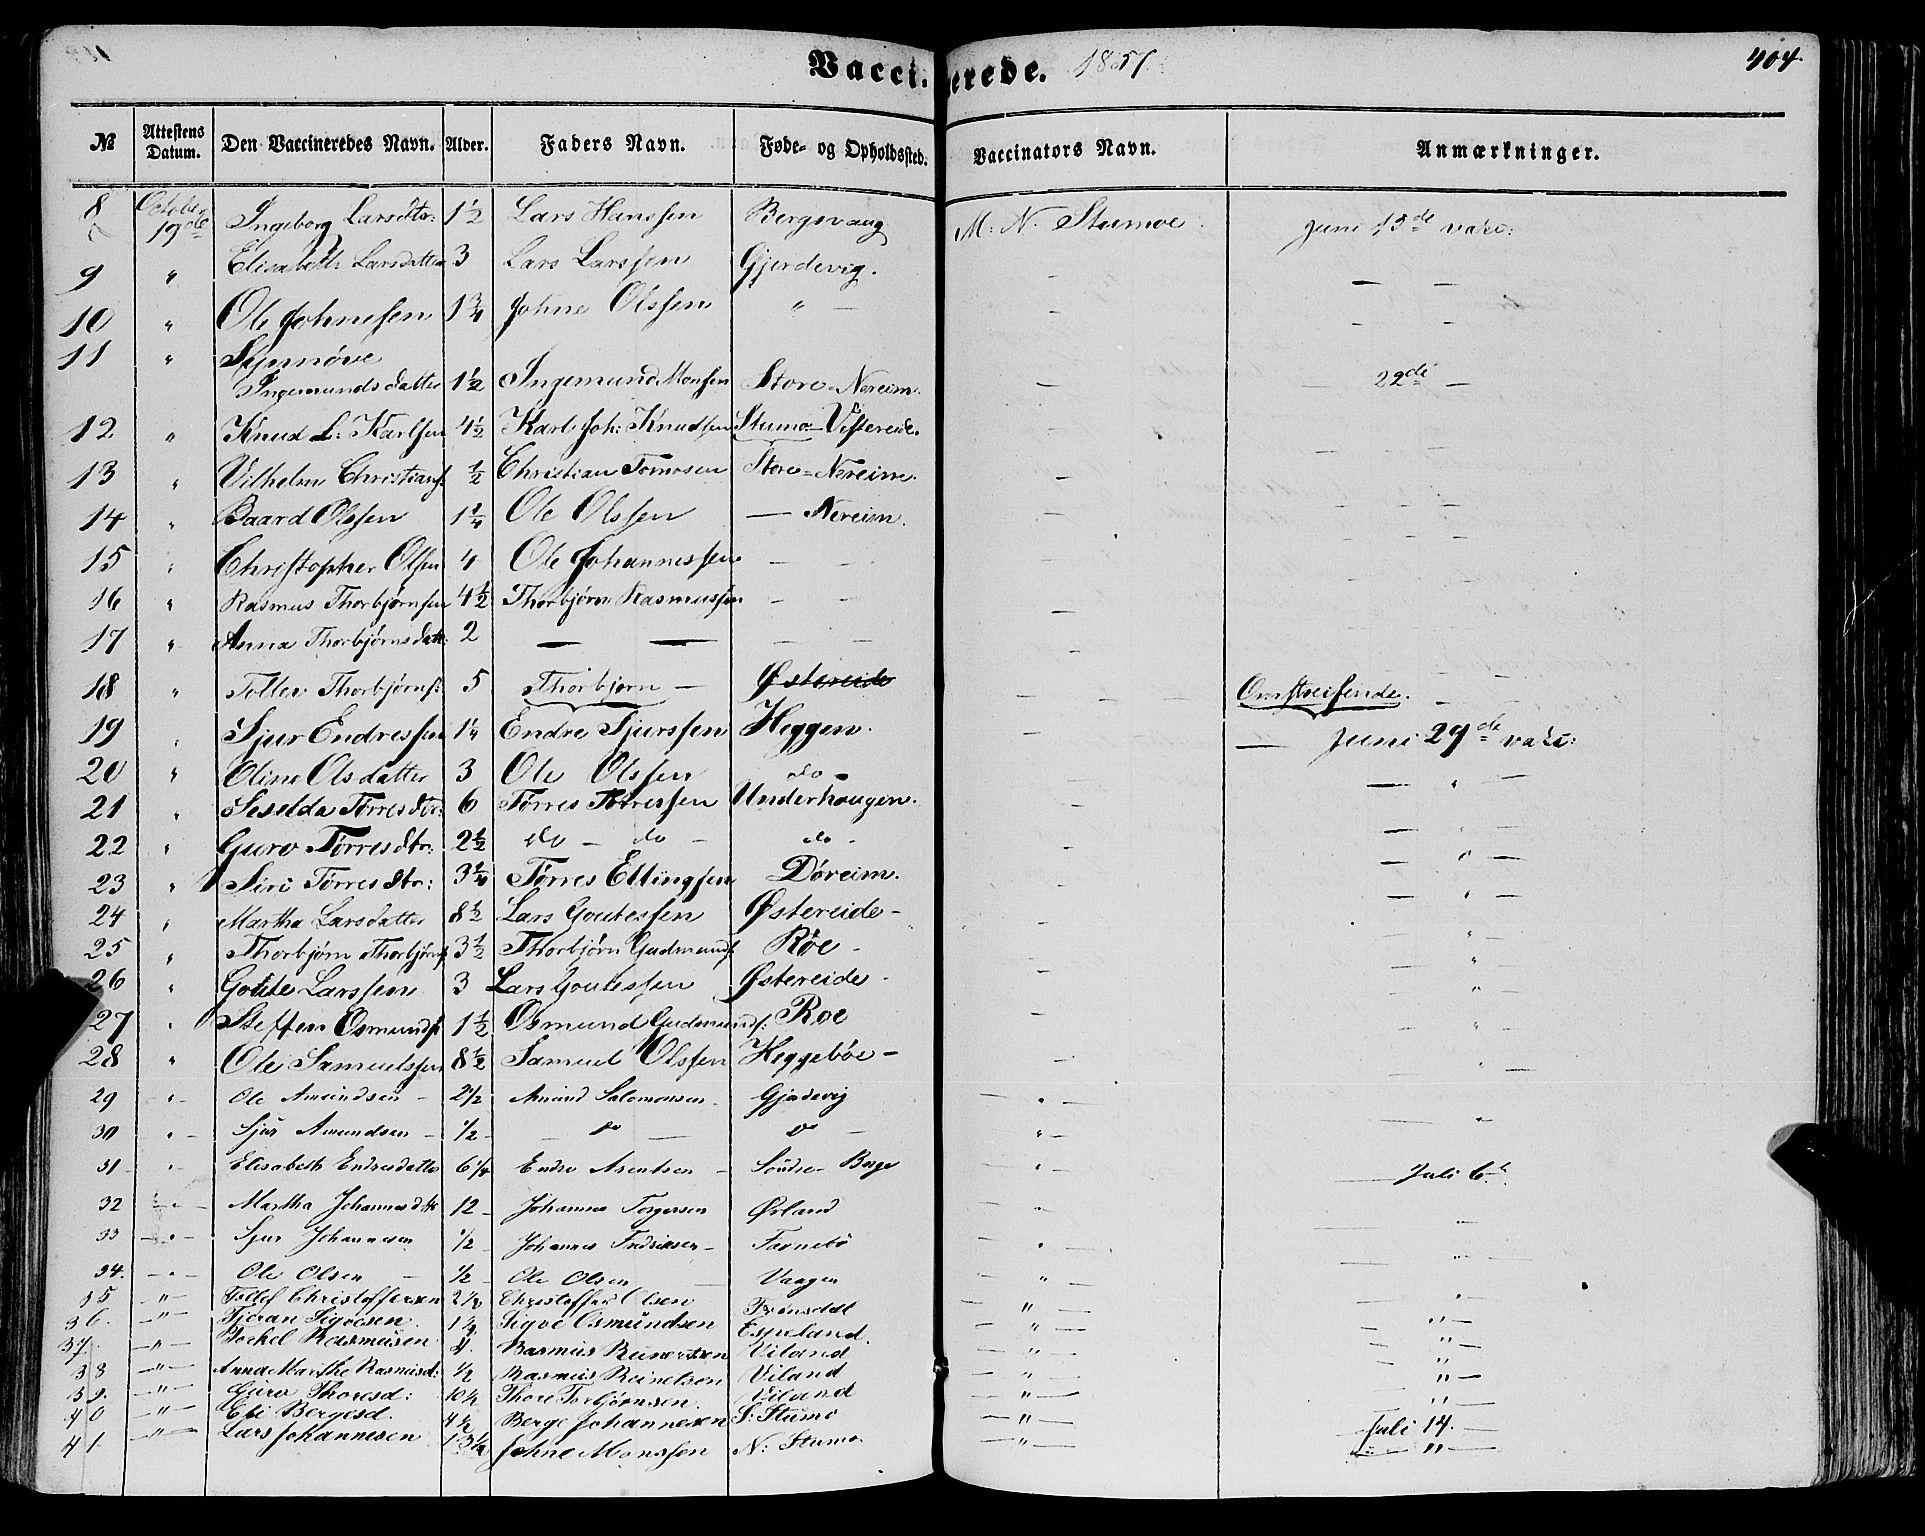 Vaccinerede. 1857
404.
№ | Attestens Datum. | Den Vaccineredes Navn. | Alder. | Faders Navn. | Føde- og Opholdssted. | Vaccinators Navn. | Anmærkninger.
8 | October 19de | Ingeborg Larsdtr: | 1½ | Lars Hanssen | Bergsvaag | M: N. Stumoe. | Juni 13de vakc:
9 | " | Elisabeth Larsdatter | 3 | Lars Larssen | Gjerdevig. | — | — —
10 | " | Ole Johnesen | 1¾ | Johne Olssen | " — | — | — —
11 | " | Synnøve Ingemundsdatter | 1½ | Ingemund Monsen | Store-Nereim. | — | — 22de —
12 | " | Knud L: Karlsen | 4½ | Karl Joh: Knudsen | Stumo-Vistereide. | — | — —
13 | " | Vilhelm Christians: | ½ | Christian Tomosen | Store-Nereim. | — | — —
14 | " | Baard Olssen | 1¼ | Ole Olssen | — Nereim. | — | — —
15 | " | Christopher Olsen | 4 | Ole Johannessen | — — | — | — —
16 | " | Rasmus Thorbjørnsen | 4½ | Thorbjørn Rasmussen | — — | — | — —
17 | " | Anna Thorbjørnsdatt: | 2 | — — | — — | — | — —
18 | " | Tollev Thorbjørns: | 5 | Thorbjørn — | Østereide | — | Omstreifende. — —
19 | " | Sjur Endressen | 1¼ | Endre Sjurssen | Heggen. | — | — Juni 29de vakc:
20 | " | Oline Olsdatter | 3 | Ole Olssen | do - | — | — "
21 | " | Seselda Tørresdtr: | 6 | Tørres Tørressen | Underhougen. | — | — " —
22 | " | Guro Tørresdtr: | 2½ | do — do — | do - | — | — " —
23 | " | Siri Tørresdtr: | 3¼ | Tørres Ellingsen | Døreim. | — | — " —
24 | " | Martha Larsdatter | 8½ | Lars Goutessen | Østereide - | — | — " —
25 | " | Thorbjørn Thorbjørns: | 3½ | Thorbjørn Gudmunds: | Røe - | — | — " —
26 | " | Goute Larssen | 3 | Lars Goutessen | Østereide - | — | — " —
27 | " | Steffen Osmunds: | 1½ | Osmund Gudmunds: | Roe | — | — " —
28 | " | Ole Samuelssen | 8½ | Samuel Olssen | Heggebøe - | — | — " —
29 | " - | Ole Amundsen - | 2½ | Amund Salomonsen - | Gjerdevig | — " — | 
30 | - " - | Sjur Amundsen - | ½ - | — do — | do — | " — | — "
31 | - " | Elisabeth Endresdatter | 6¼ | Endre Arentsen - | Søndre Berge | " — | — Juli 6te
32 | - " - | Martha Johannesdtr | 12 - | Johannes Torgersen | Ørland | — " | — "
33 | - " - | Sjur Johannesen | ½ - | Johannes Fredriksen - | Tornebø | — " — | — " —
34. | - " - | Ole Olsen - | ½ - | Ole Olsen — | Vaagen | — " — | — " —
35 | - " - | Tollef Christoffersen | | Christoffer Olsen | | — " — | — " —
36. | - " - | Tjeran Sigvesen. | | Sigve Osmundsen | Espeland. | — " — | — " —
37. | - " - | Torkel Rasmusen | | Rasmus | Viland | — " — | — " —
38 | - " - | Anna Marthe Rasmusd: | ½ | Rasmus Reinelsen | Viland | — " — | — " —
39. | - " - | Guro Thoresd: | 10¼ | Thore Torbjørnsen. | Viland | — " — | — " —
40 | - " - | Eli Bergesd. | 4½ | Berge Johannesen | S: Stumo | — " — | — Juli 14. —
41. | - " - | Lars Johannesen | | Johne Monssen | N: Stumo. | — " — | — " —